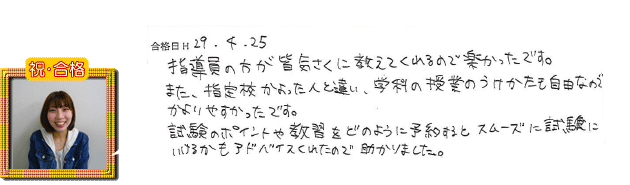 祝・合格
合格日 H 29.4.25
指導員の方が皆気さくに教えてくれるので楽かったです。
また、指定校かよった人と違い、学科の授業のうけかたも自由なので
かよりやすかったです。
試験のポイントや教習をどのように予約するとスムーズに試験に
いけるかもアドバイスくれたので助かりました。